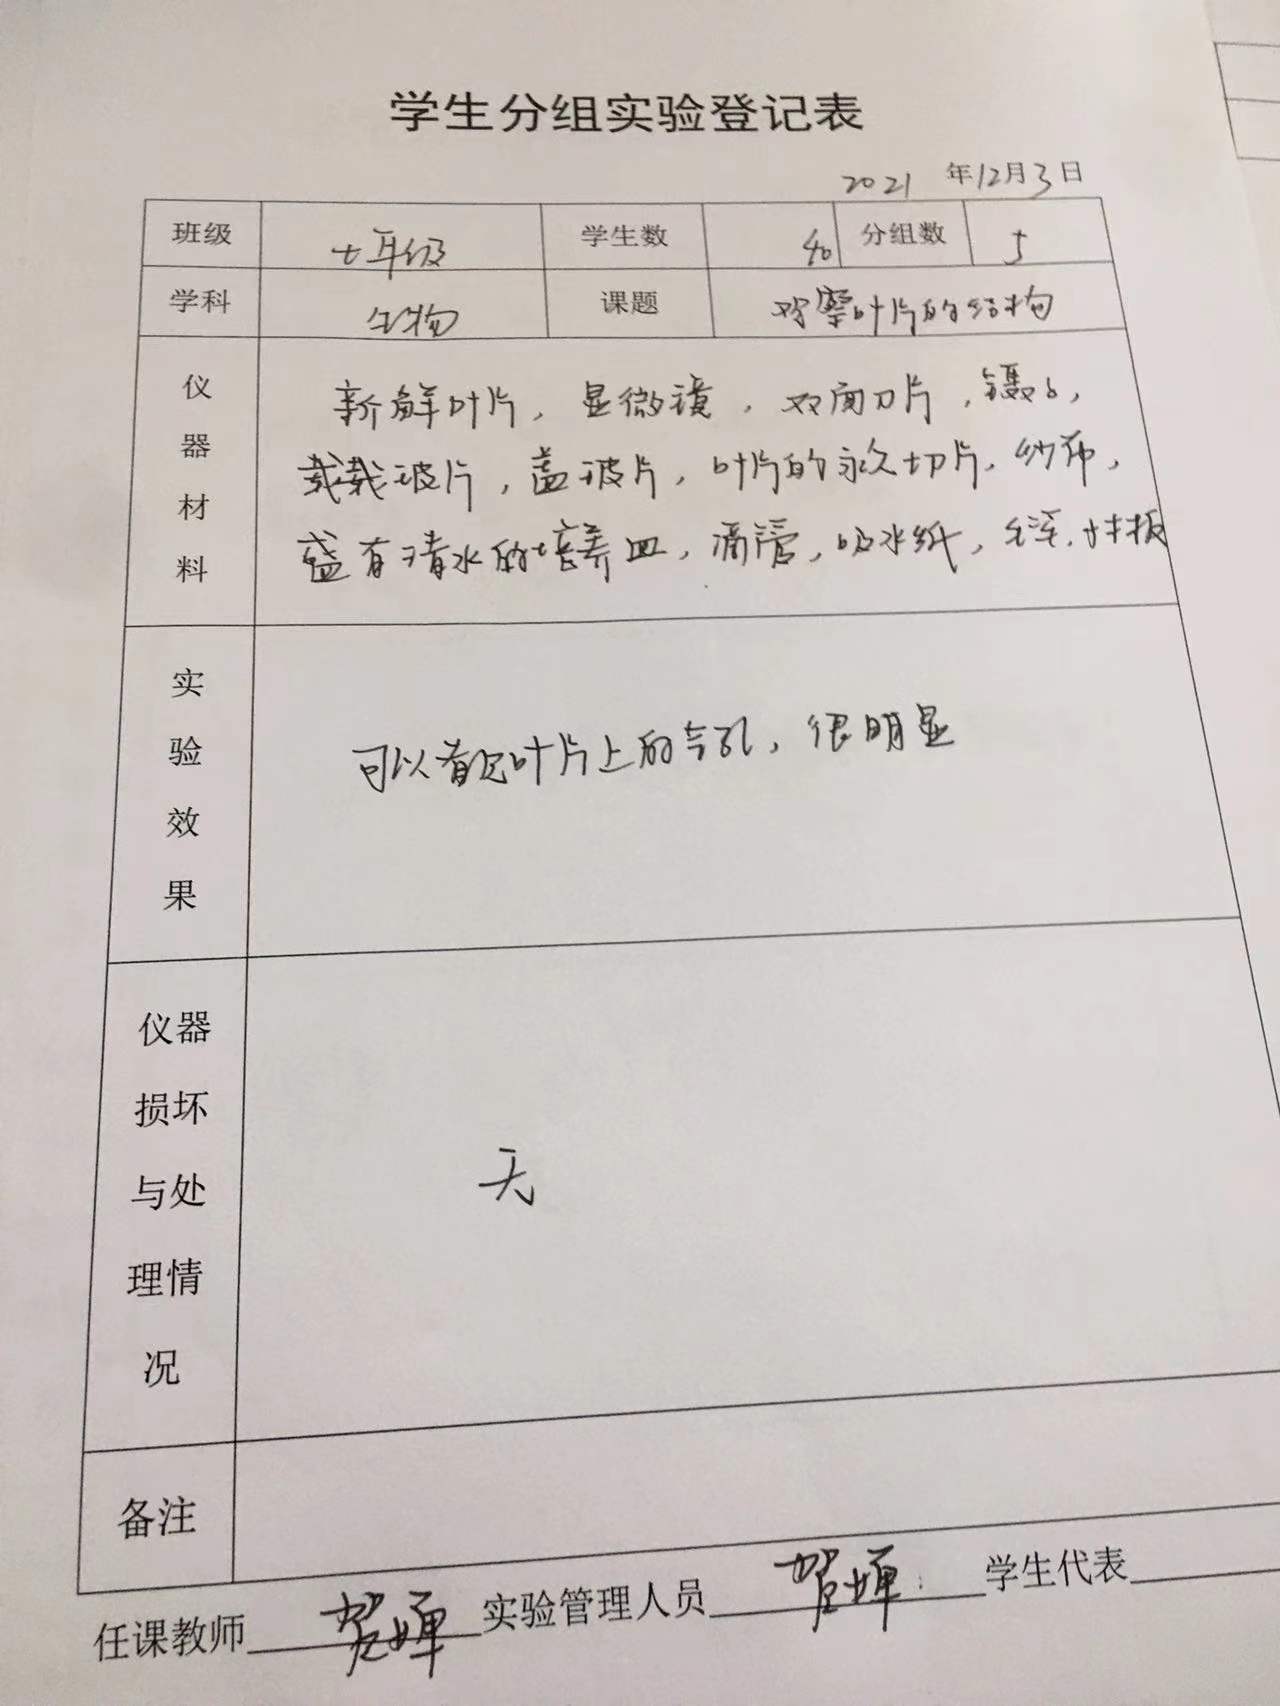 学生分组实验登记表
2021 年12月3日
班级 七年级 学生数 40 分组数 5
学科 生物 课题 观察叶片的结构
仪器材料
新鲜叶片，显微镜，双面刀片，镊子，
载玻片，盖玻片，叶片的永久切片，纱布，
盛有清水的培养皿，滴管，吸水纸，毛笔，
实验效果
可以看见叶片上的气孔，很明显
仪器损坏与处理情况
无
备注
任课教师 贺婵 实验管理人员 贺婵 学生代表